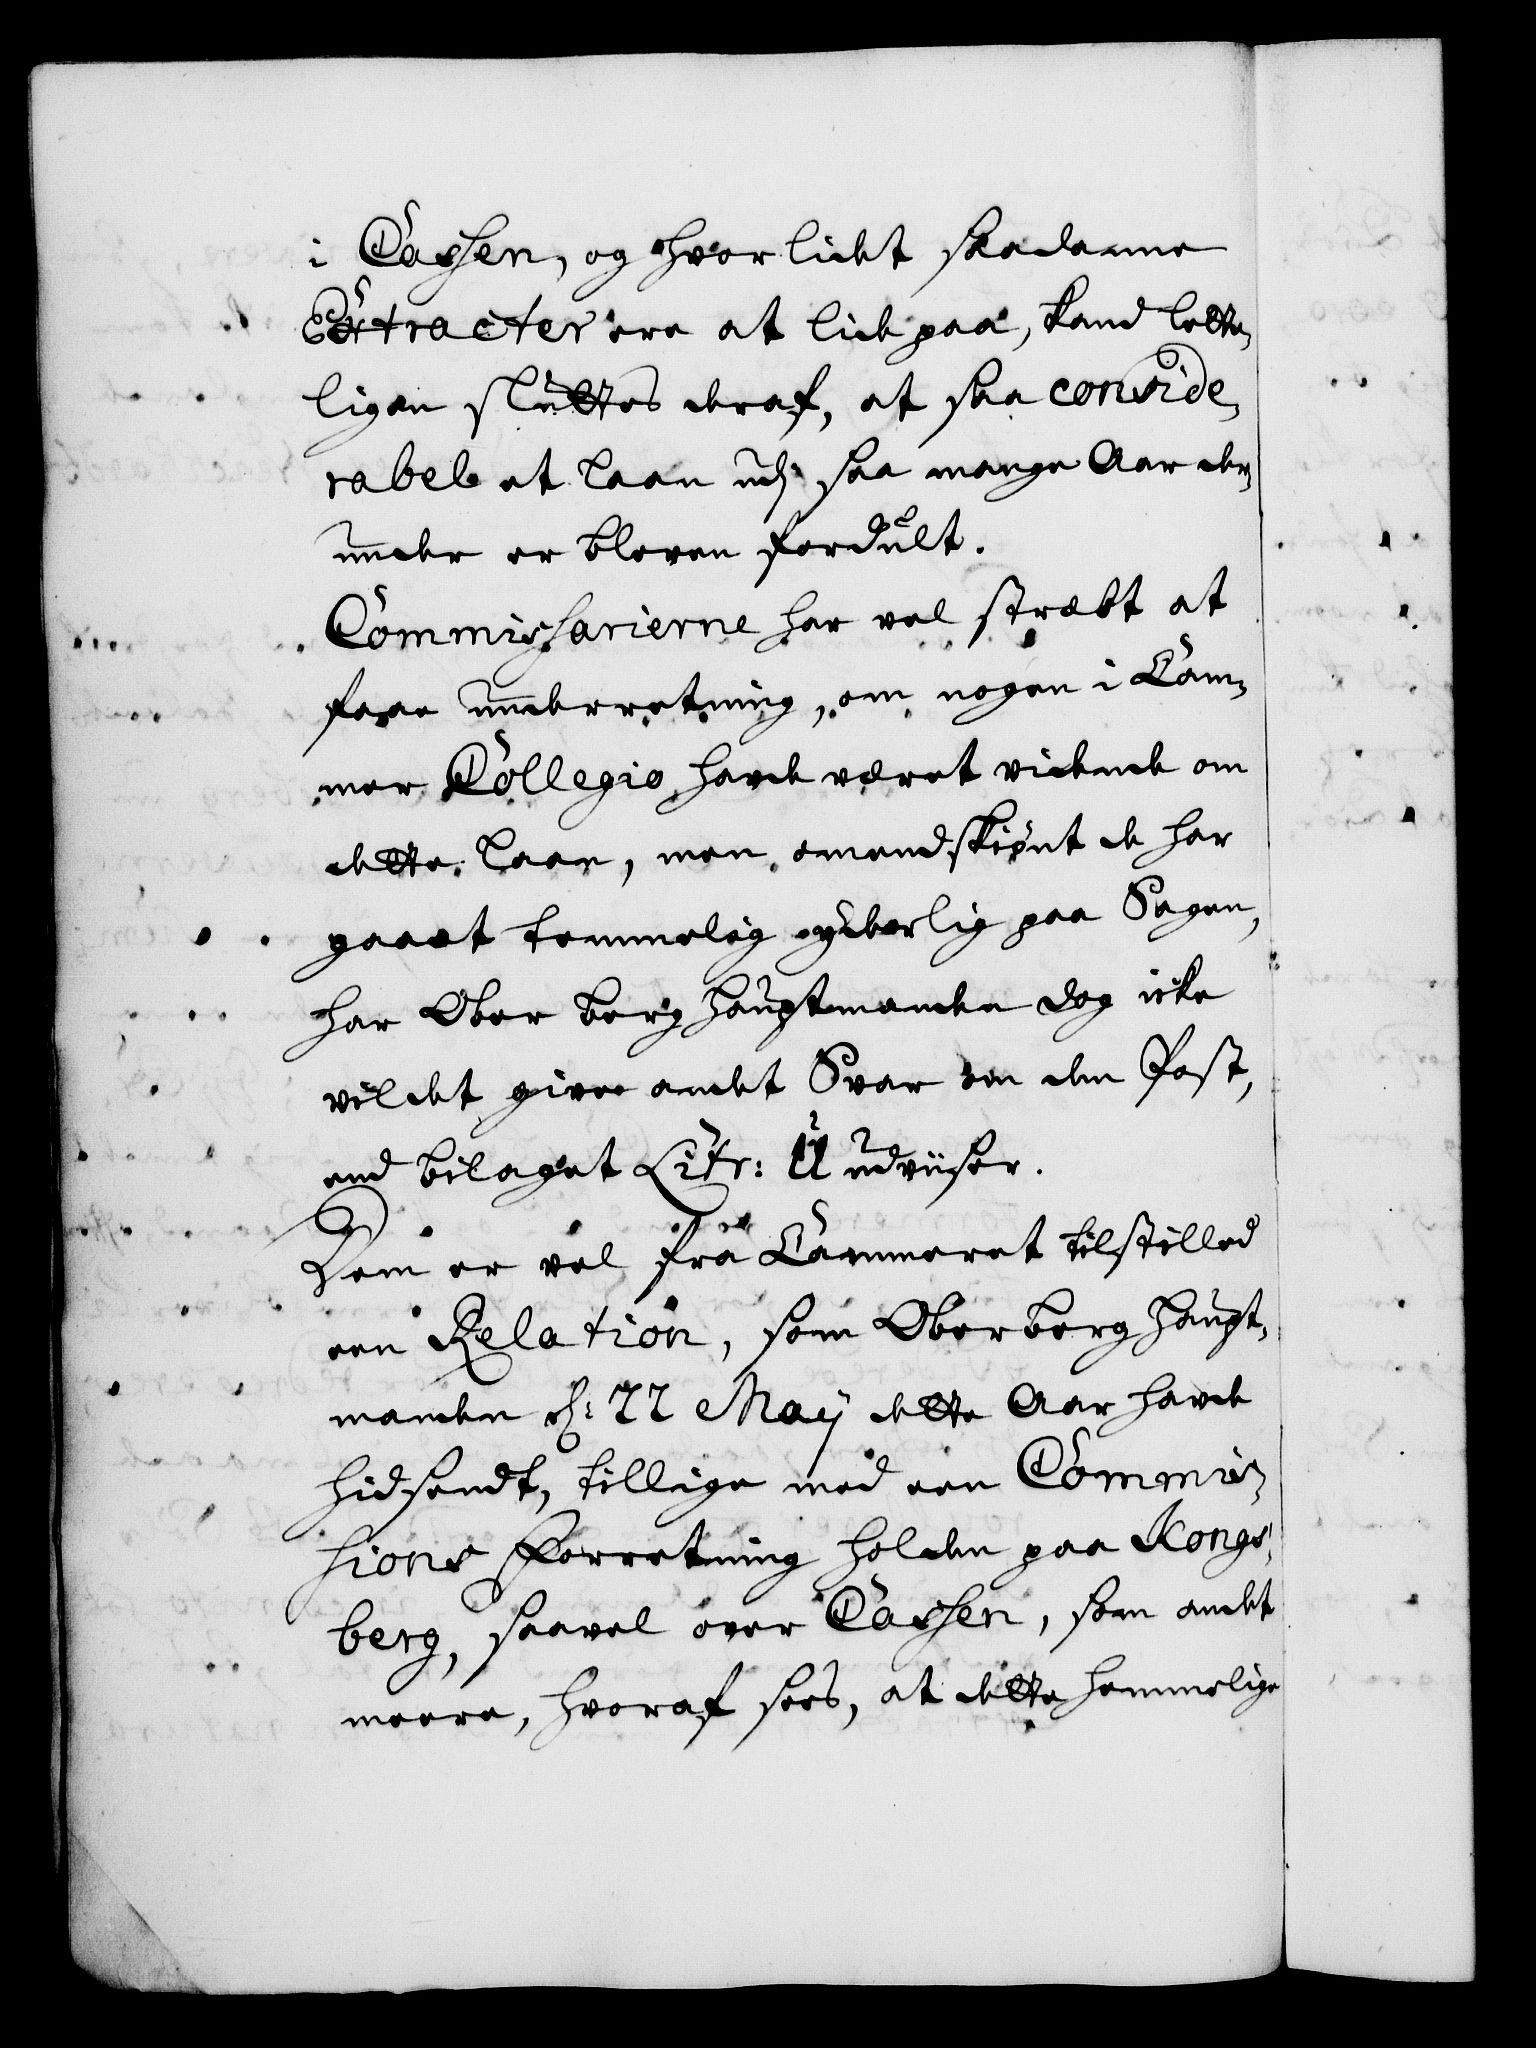 i Cassen, og hvor lidet saadanne
Extracter ere at lide paa, kand lette,
ligen sluttes deraf, at saa conside,
rabele et laan udj saa mange Aar der,
under er bleven fordult.
Commissarierne har vel stræbt at
faae underretning, om nogen i Cam,
mer Collegio hafde været vidende om
dette laan, men omendskiønt de har
gaaet temmelig yderlig paa Sagen,
har Ober berghauptmanden dog icke
vildet give andet Svar om den Post,
end bilaget Litr: U udviiser.
Dem er vel fra Cammeret tilstilled
een Relation, som Oberberghaupt,
manden d: 22 Maij dette Aar hafde
hidsendt, tillige med een Commis,
sions Forretning holden paa Kongs,
berg, saavel over Cassen, som andet
meere, hvoraf sees, at dette hemmelige